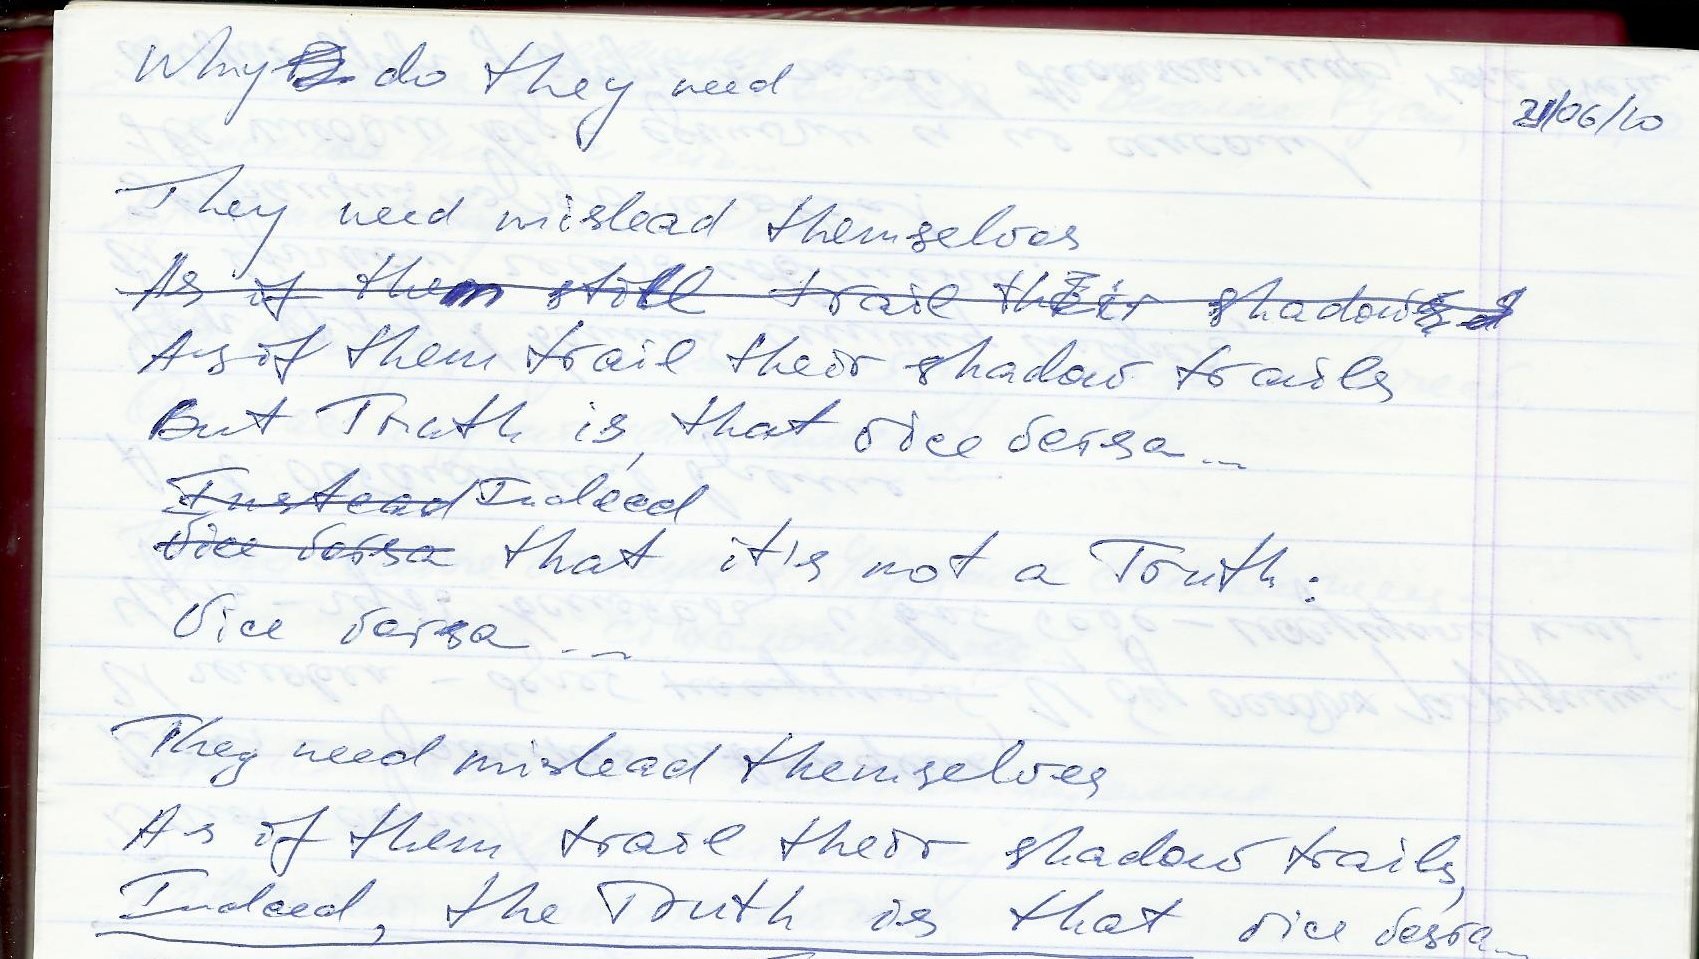 Why do they need
21/06/10
They need mislead themselves
As if them still trail their shadows
As if them trail their shadow trails
But Truth is, that vice versa...
Instead Indeed
vice versa that it's not a Truth:
vice versa...
They need mislead themselves
As if them trail their shadow trails,
Indeed, the Truth is that vice versa...